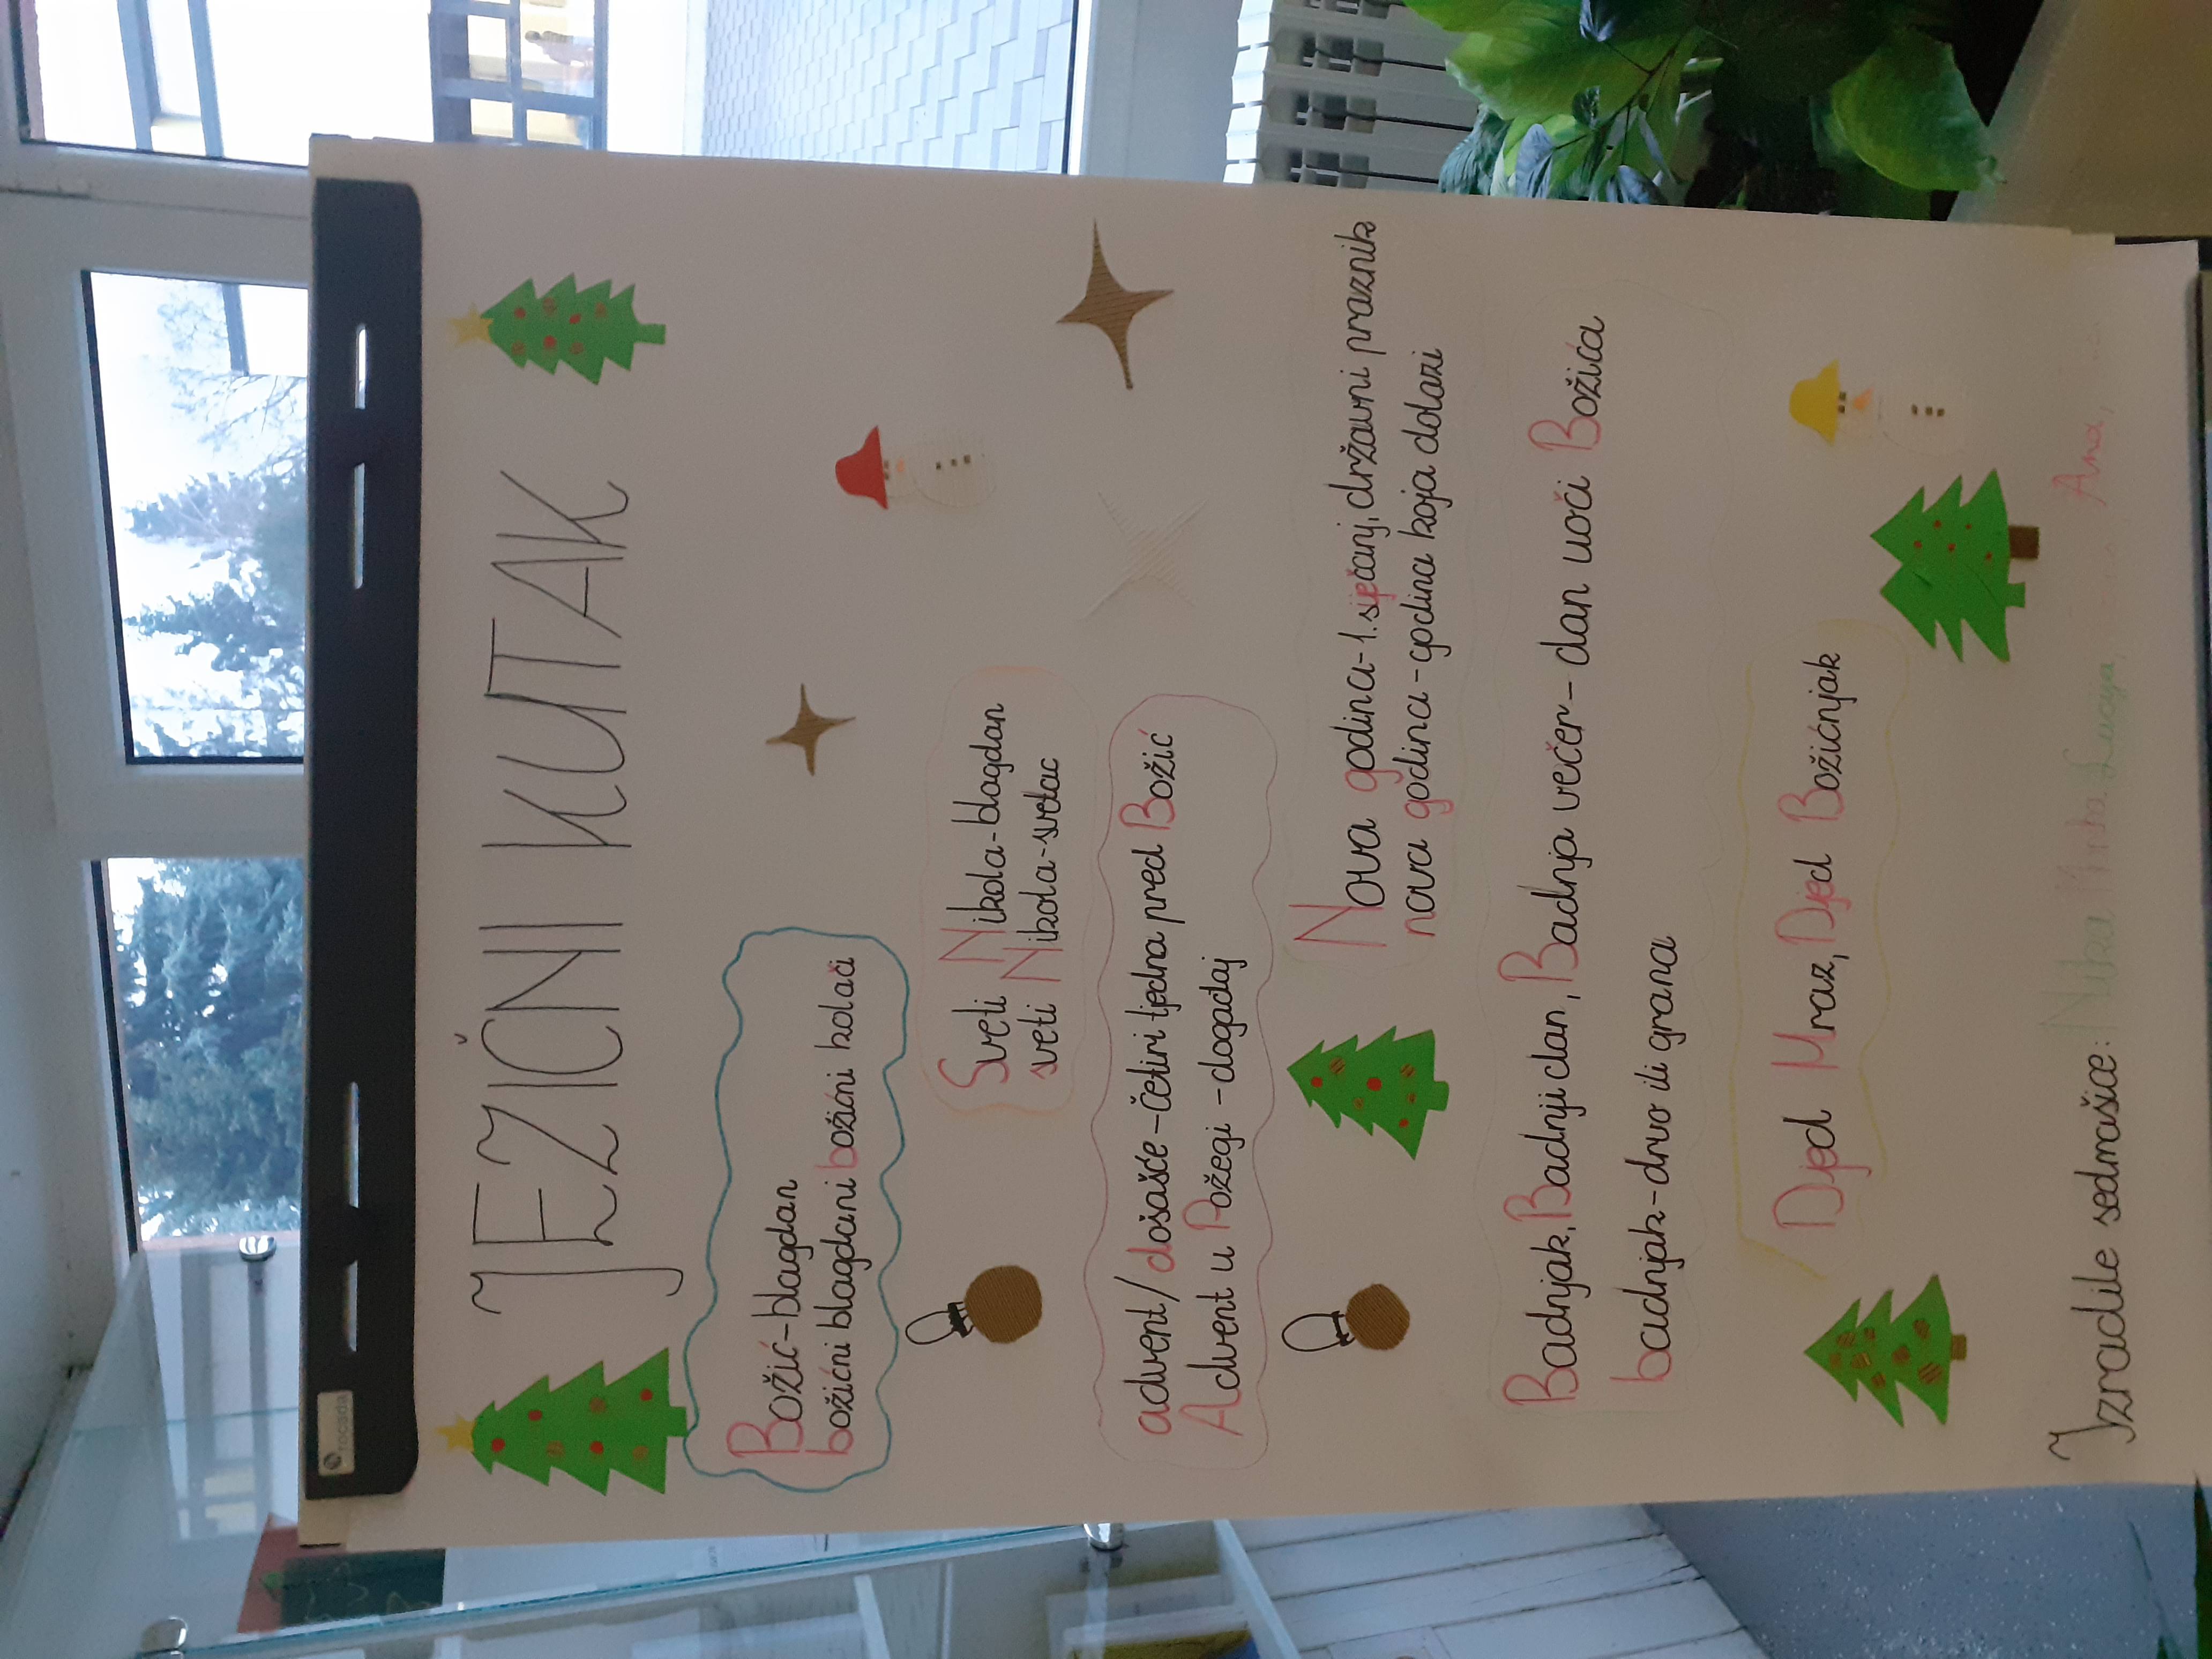 rocada
JEZIČNI KUTAK
Božić-blagdan
božićni blagdani božićni kolači
Sveti Nikola-blagdan
sveti Nikola-svetac
advent/došašće-četiri tjedna pred Božić
Advent u Požegi-događaj
Nova godina-1. siječanj, državni praznik
nova godina-godina koja dolazi
Badnjak, Badnji dan, Badnja večer-dan uoči Božića
badnjak-drvo ili grana
Djed Mraz, Djed Božićnjak
Izradile sedmašice: Nika Lucija, Ana,